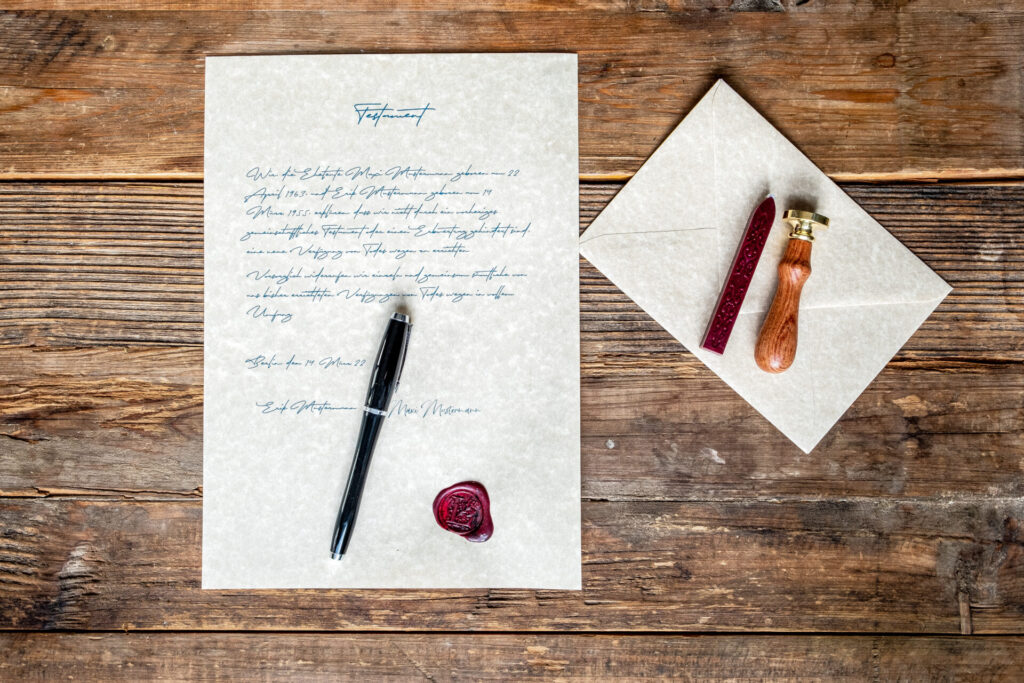 Testament
Wir die Eheleute Maxi Mustermann geboren am 22
April 1963 und Erik Mustermann geboren am 14
März 1955 erklären, dass wir nicht durch ein vorheriges
gemeinschaftliches Testament oder einen Erbvertrag gehindert sind,
eine neue Verfügung von Todes wegen zu errichten.
Vorsorglich widerrufen wir einzeln und gemeinsam sämtliche von
uns bisher errichteten Verfügungen von Todes wegen in vollem
Umfang
Berlin den 14. März 22
Erik Mustermann Maxi Mustermann